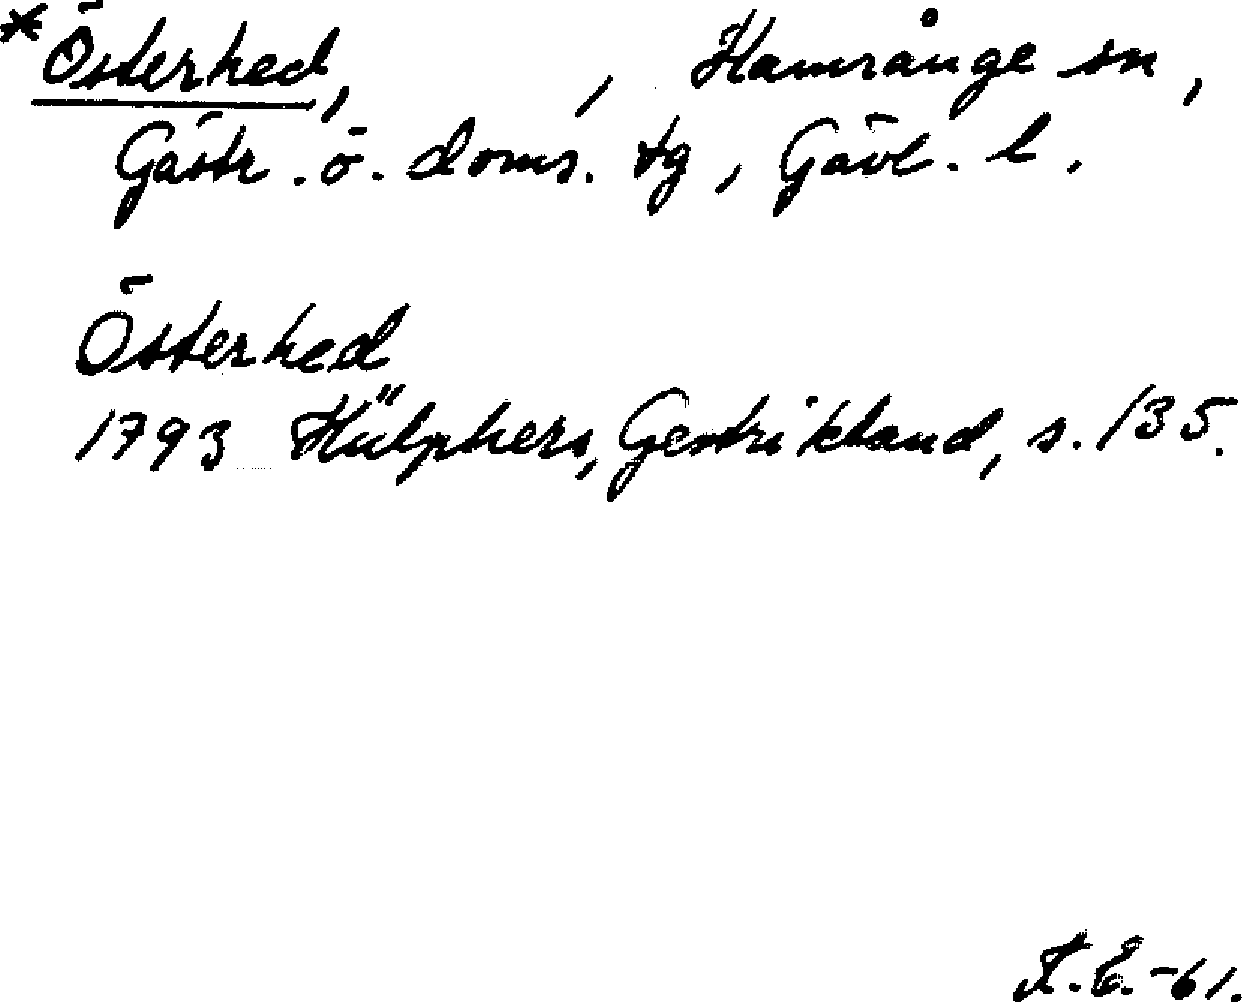 *Österhed, , Hamrånge sn,
Gästr. ö. doms. tg, Gävl. l.
Österhed
1793 Hülphers, Gestrikland, s. 135.
F.E.-61.